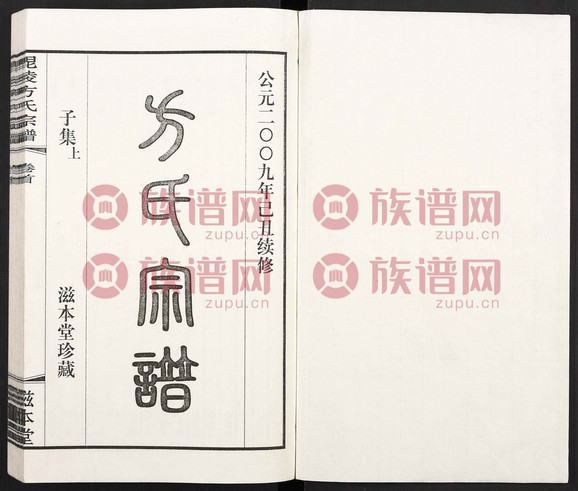 公元二〇〇九年己丑续修
方氏宗譜
子集上
滋本堂珍藏
毘陵方氏宗譜
卷首
滋本堂
族谱网
zupu.cn
族谱网
zupu.cn
族谱网
zupu.cn
族谱网
zupu.cn